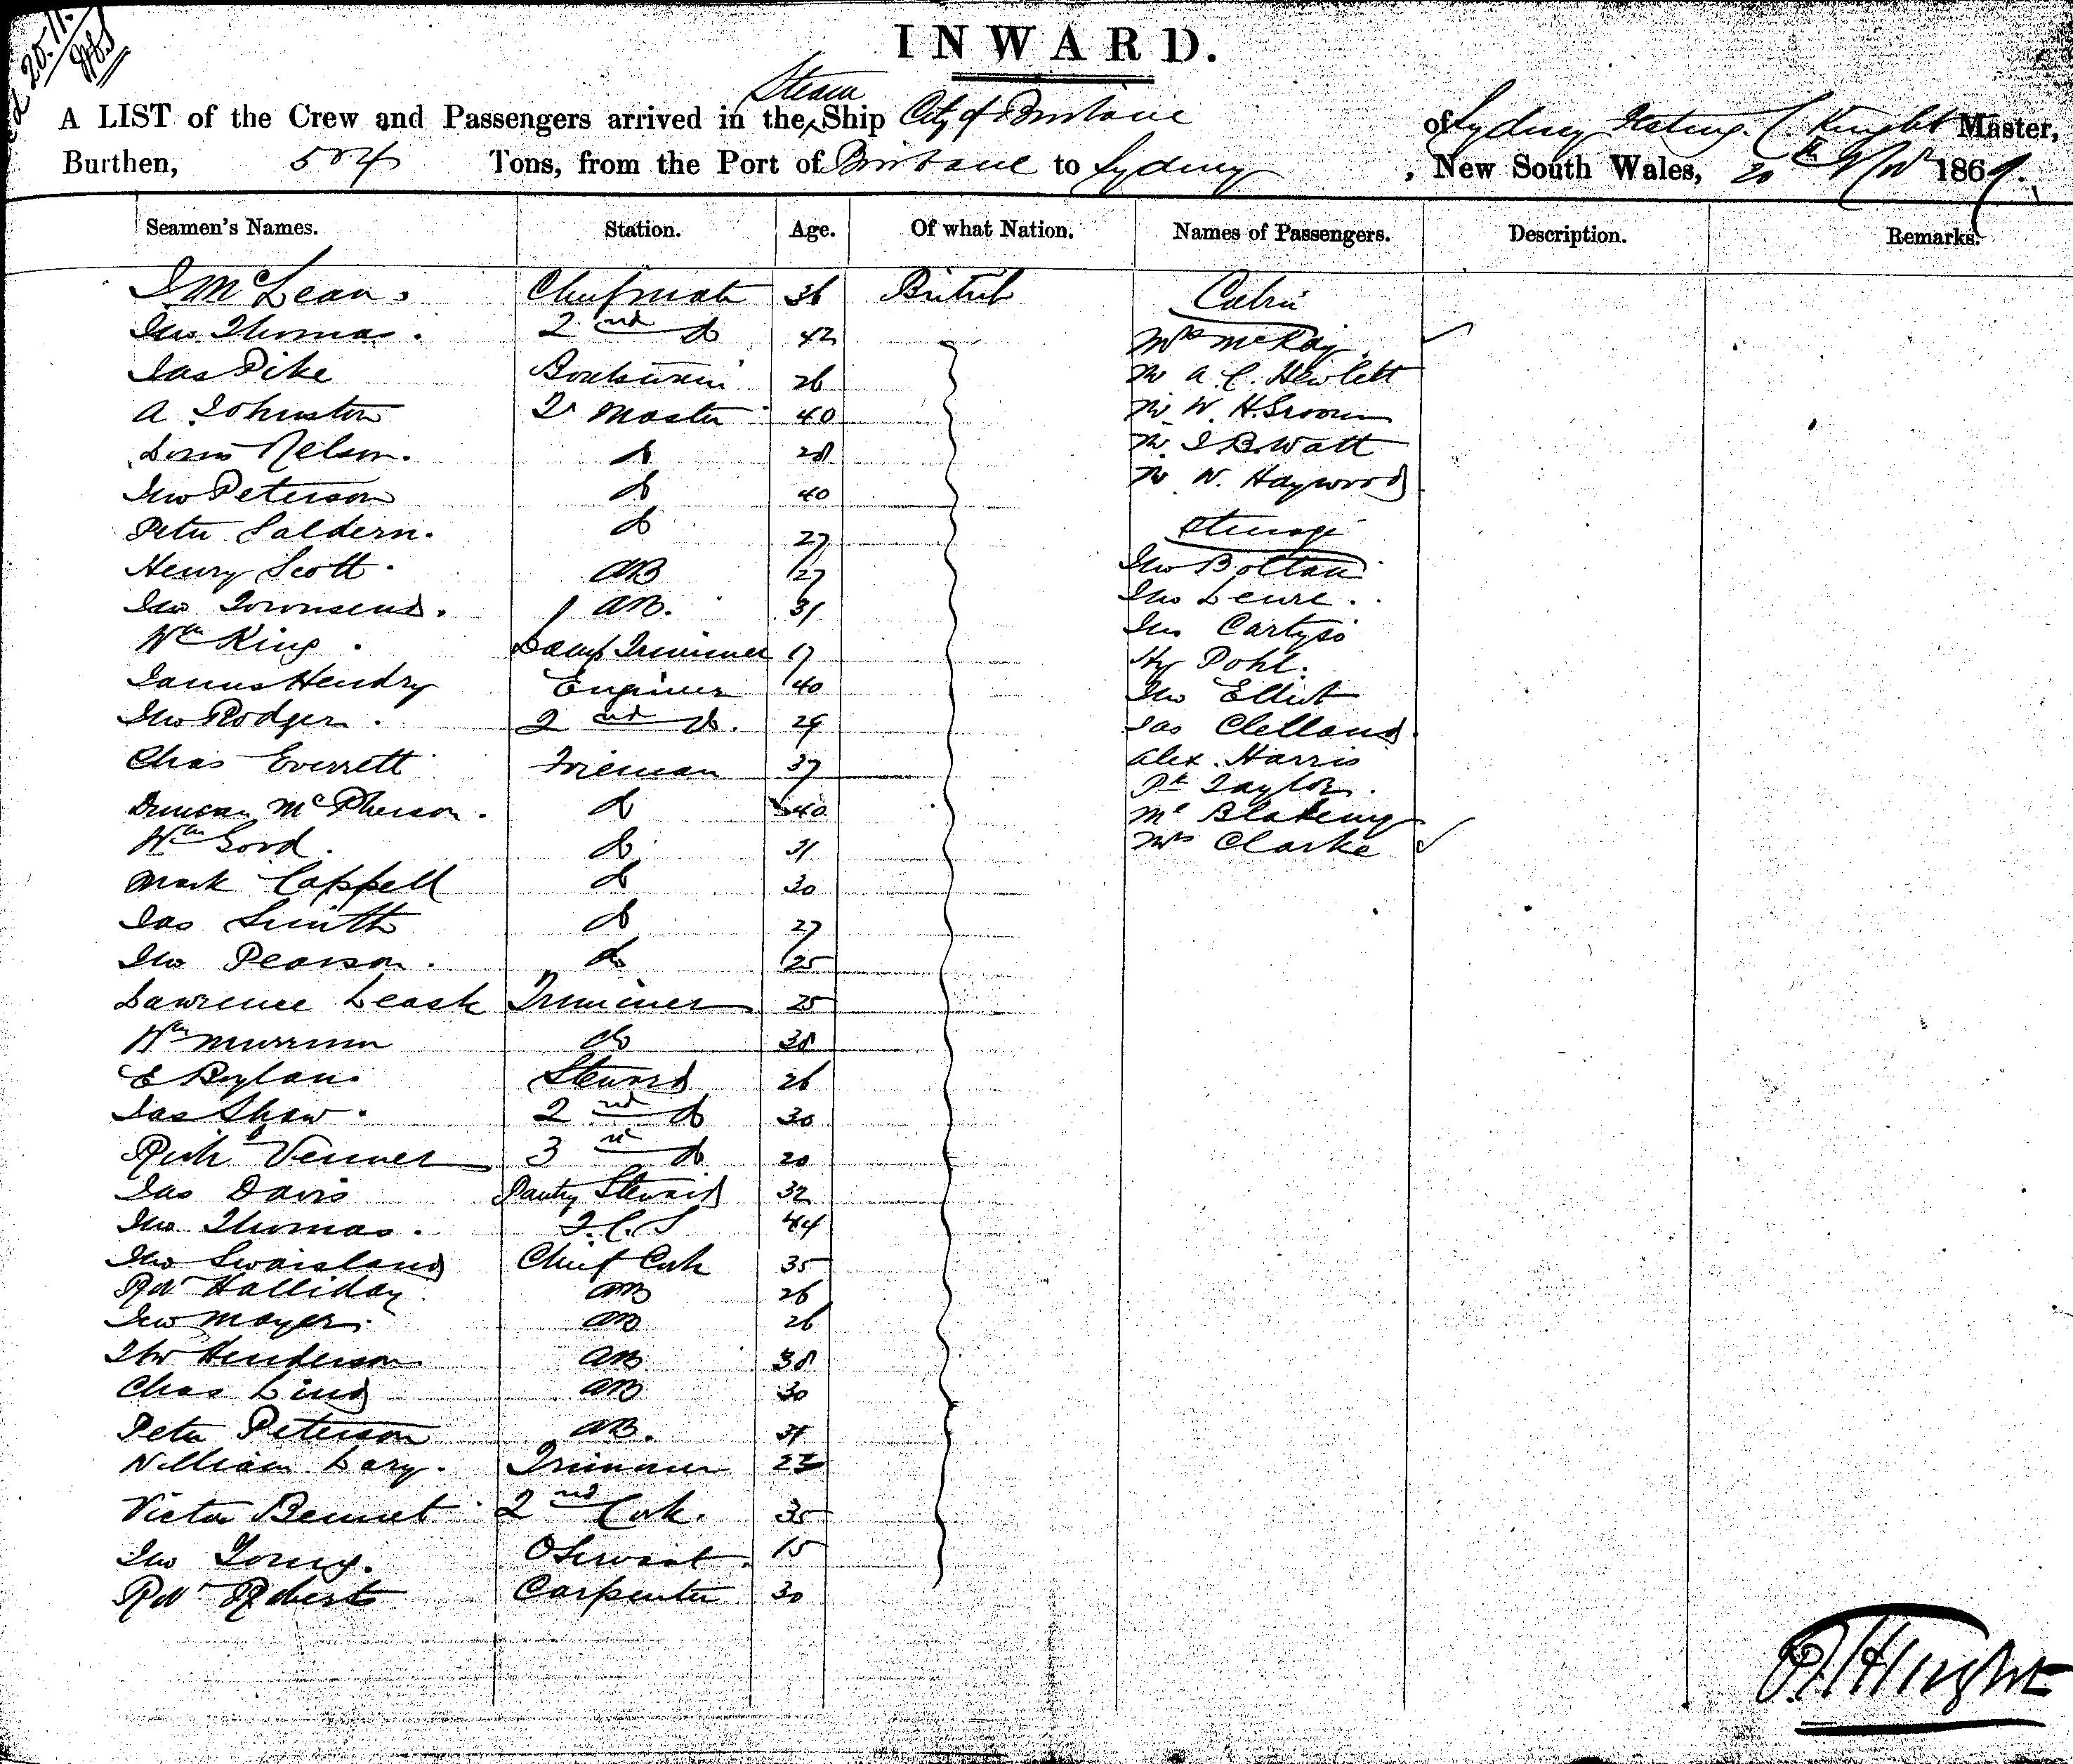 20.11.
INWARD.
Steam
A LIST of the Crew and Passengers arrived in the Ship City of Brisbane of Sydney Knight Master,
Burthen, 504 Tons, from the Port of Brisbane to Sydney, New South Wales, 20th Novr 1869.
Seamen's Names. Station. Age. Of what Nation. Names of Passengers. Description. Remarks.
J McLean. Chief mate 36 British Cabin
Jno Thomas. 2nd do 42 Mrs McKay
Jas Pike Boatswain 26 Mr A. C. Hewlett
A Johnston Qr Master 40 Mr W. H. Groom
Nelson. do 28 Mr J B. Watt
Jno Peterson do 40 Mr W. Haywood
Peter Saldern. do 27 Steerage
Henry Scott. AB 27 Jno Bolton
Jno Townsend. AB. 31 Jno
Wm King. Lamp Trimmer 17 Jno
James Hendry Engineer 40 Hy Pohl.
Jno Rodger. 2nd do. 29 Jno Elliot
Chas Everett Fireman 37 Jas Clelland.
Duncan McPherson. do 40 Alex. Harris
Wm Good. do 31 Pk Taylor.
Mark Cappell do 30 Blakeny
Jas Smith do 27 Mrs Clarke
Jno Pearson. do 25
Lawrence Leask Trimmer 25
Wm do 38
E Boylan. Steward 26
Jas Shaw. 2nd do 30
Richd Venner 3rd do 20
Jas Davis Pantry Steward 32
Jno Thomas. F. C. S 44
Jno Swaisland Chief Cook 35
Robt Halliday AB 26
Jno Mayer. AB 26
Henderson. AB 38
Chas Lind AB 30
Peter Peterson AB. 31
William Lary. Trimmer 23
Victor Bennet 2nd Cook. 35
Jno Young. O Servant. 15
Robt Roberts Carpenter 30
Knight